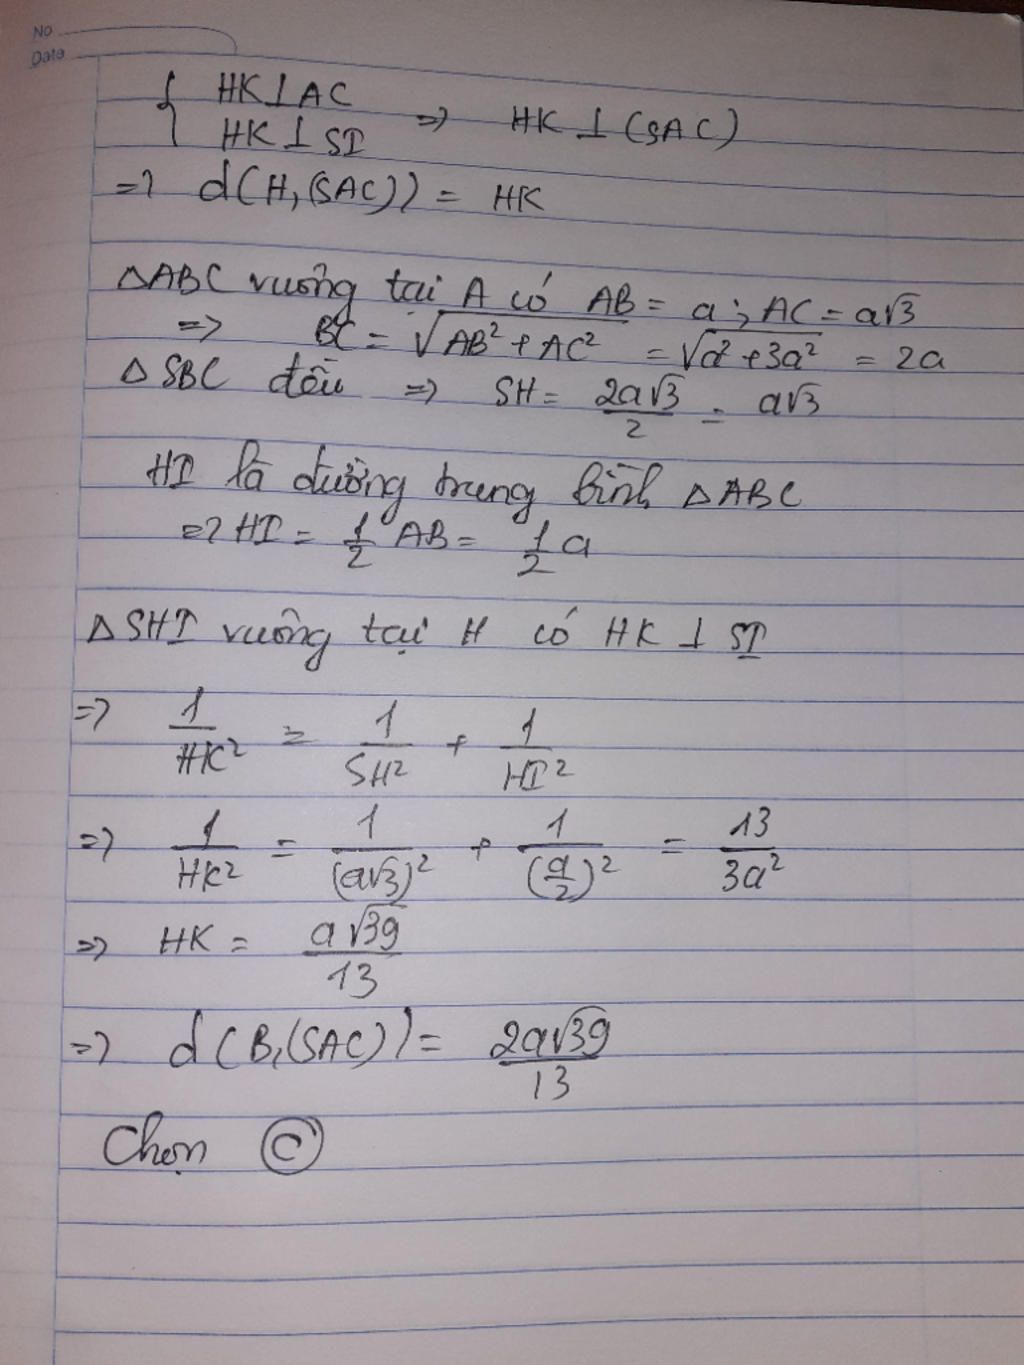 No
Date
{ HK⊥AC
HK⊥SI => HK⊥(SAC)
=> d(H,(SAC)) = HK
△ABC vuông tại A có AB = a; AC = a√3
=> BC = √AB² + AC² = √a² + 3a² = 2a
△SBC đều => SH = 2a√3/2 = a√3
HI là đường trung bình △ABC
=> HI = 1/2 AB = 1/2 a
△SHI vuông tại H có HK ⊥ SI
=> 1/HK² = 1/SH² + 1/HI²
=> 1/HK² = 1/(a√3)² + 1/(a/2)² = 13/3a²
=> HK = a√39/13
=> d(B,(SAC)) = 2a√39/13
Chọn Ⓒ